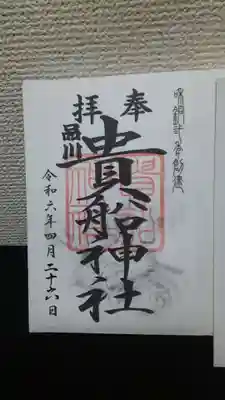 奉拝
品川
貴船神社
令和六年四月二十六日